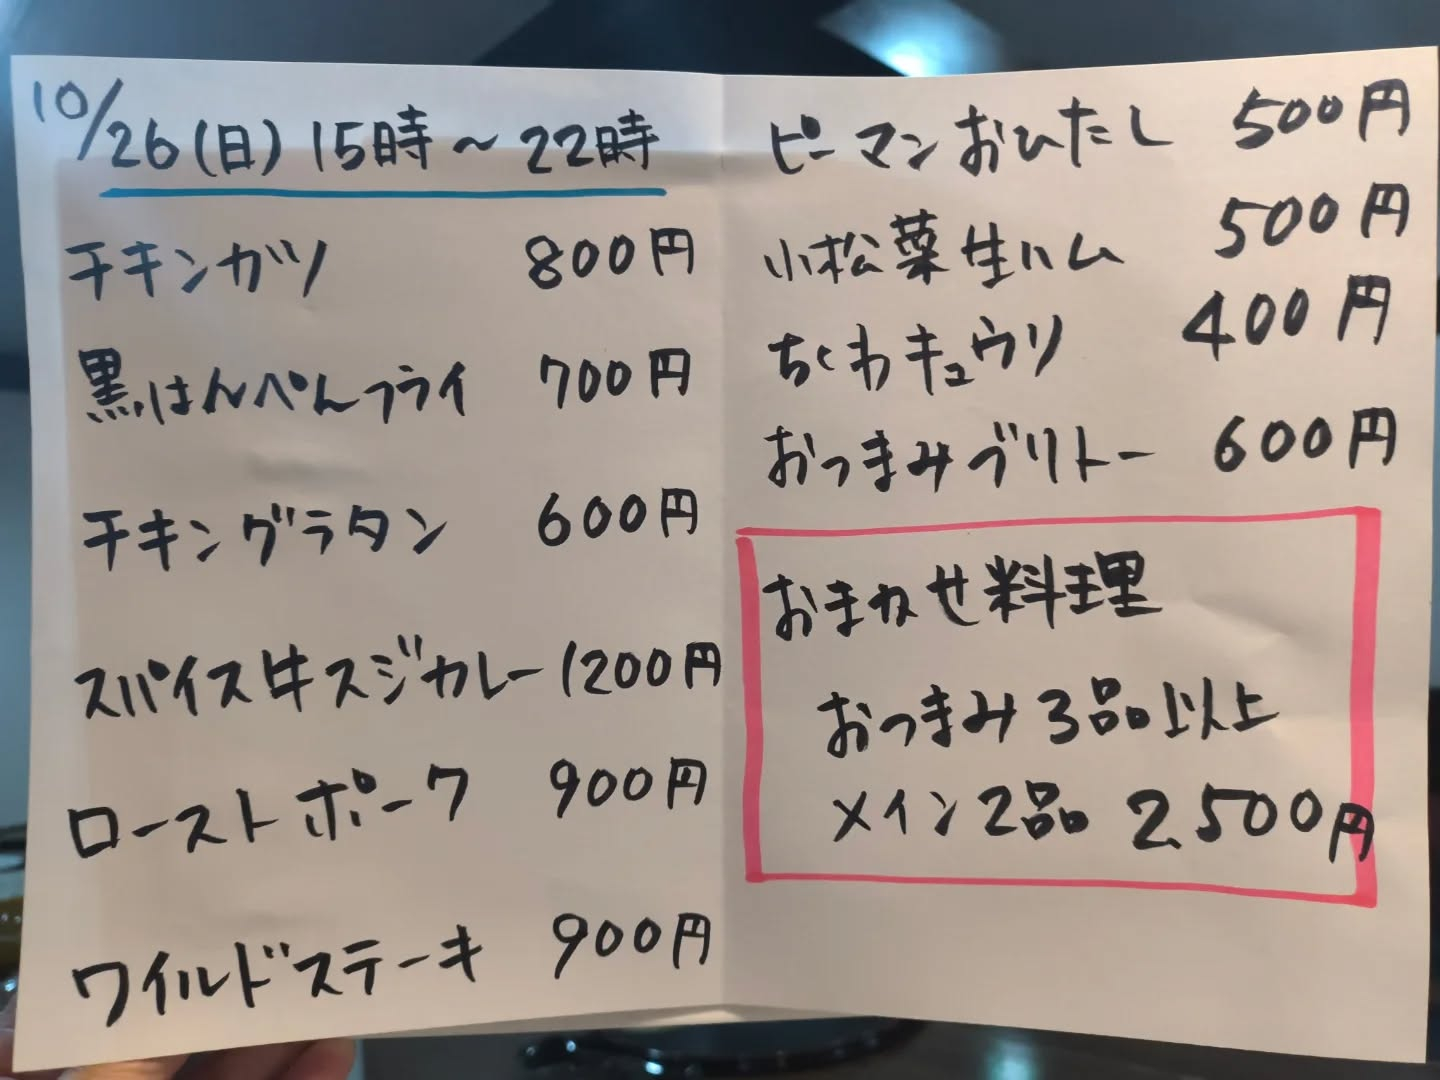 10/26(日) 15時～22時
チキンカツ 800円
黒はんぺんフライ 700円
チキングラタン 600円
スパイス牛スジカレー 1200円
ローストポーク 900円
ワイルドステーキ 900円
ピーマンおひたし 500円
小松菜生ハム 500円
ちくわキュウリ 400円
おつまみブリトー 600円
おまかせ料理
おつまみ3品以上
メイン2品 2,500円